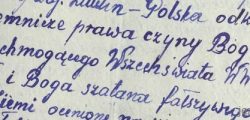 Lublin-Polska od
jemnice prawa czyny Bog
chmogącego Wszechświata W
i Boga szatana fałszywego
iemi ocenione